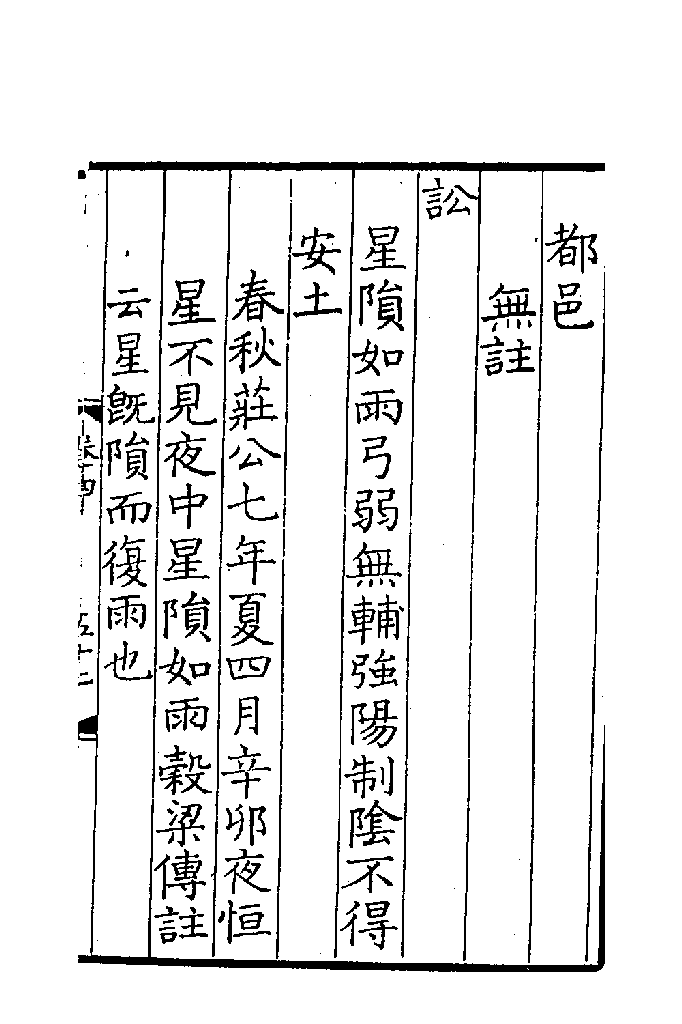 都邑
無註
訟
星隕如雨弓弱無輔強陽制陰不得
安土
春秋莊公七年夏四月辛卯夜恒
星不見夜中星隕如雨穀梁傳註
云星旣隕而復雨也